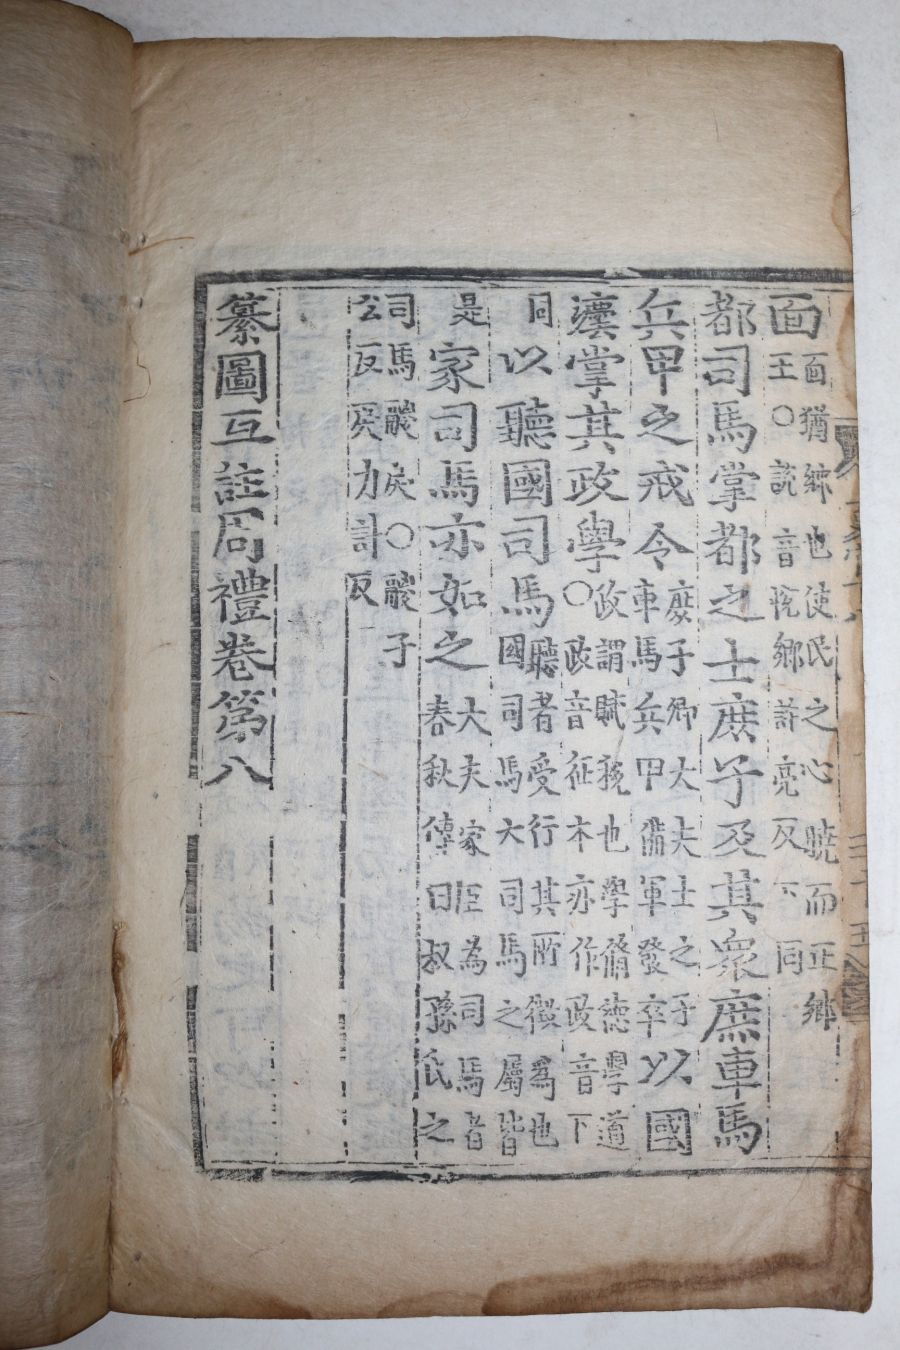 面面猶鄕也使民之心曉而正鄕王○説音悅鄕許亮反下同
都司馬掌都之士庶子及其衆庶車馬
兵甲之戒令庶子卿大夫士之子車馬兵甲備軍發卒以國
灋掌其政學政謂賦稅也學脩德學道○政音征本亦作政音下
同以聽國司馬聽者受行其所徵爲也國司馬大司馬之屬皆
是家司馬亦如之大夫家臣為司馬者春秋傳曰叔孫氏之
司馬鬷戾○鬷子公反戾力計反
纂圖互註周禮卷第八